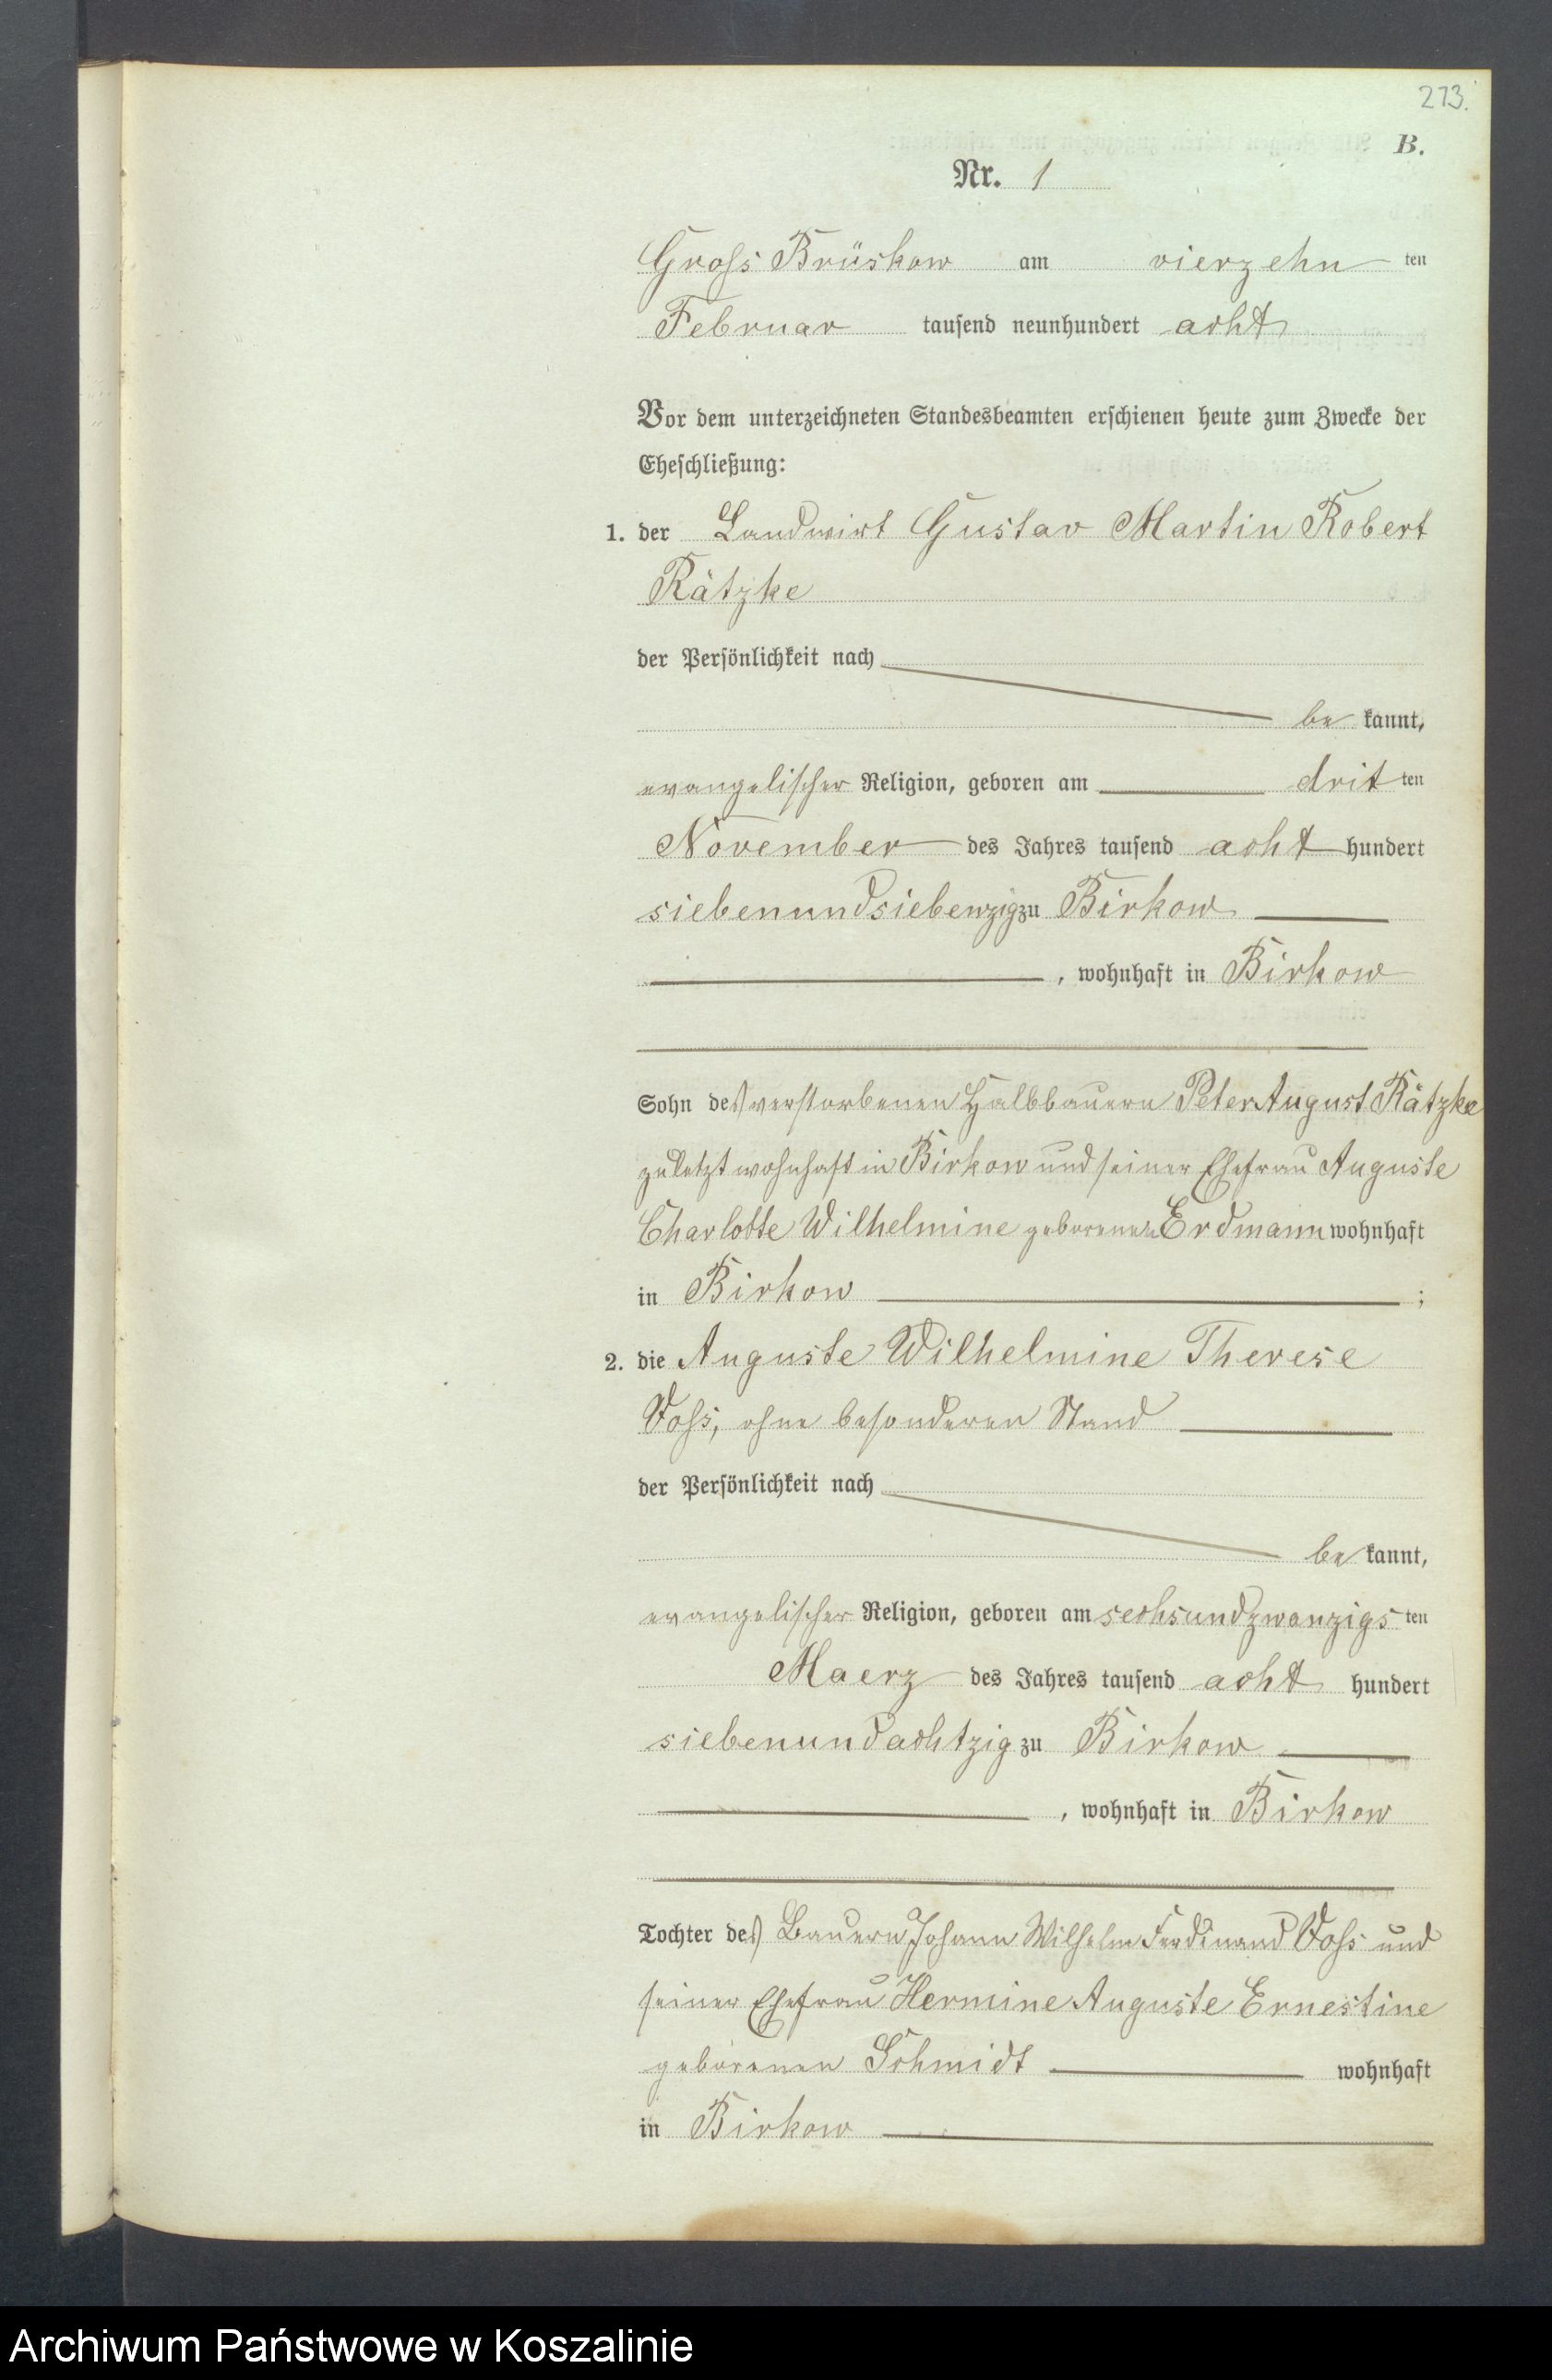 273.
B.
Nr. 1
Gross Brüskow am vierzehn ten
Februar tausend neunhundert acht
Vor dem unterzeichneten Standesbeamten erschienen heute zum Zwecke der
Eheschließung:
1. der Landwirt Gustav Martin Robert
Rätzke
der Persönlichkeit nach
be kannt,
evangelischer Religion, geboren am drit ten
November des Jahres tausend acht hundert
siebenundsiebenzig zu Birkow
, wohnhaft in Birkow
Sohn des verstorbenen Halbbauern Peter August Rätzke
zuletzt wohnhaft in Birkow und seiner Ehefrau Auguste
Charlotte Wilhelmine geborenen Erdmann wohnhaft
in Birkow ;
2. die Auguste Wilhelmine Therese
Voss, ohne besonderen Stand
der Persönlichkeit nach
be kannt,
evangelischer Religion, geboren am sechsundzwanzigs ten
Maerz des Jahres tausend acht hundert
siebenundachtzig zu Birkow
, wohnhaft in Birkow
Tochter des Bauern Johann Wilhelm Ferdinand Voss und
seiner Ehefrau Hermine Auguste Ernestine
geborenen Schmidt wohnhaft
in Birkow
Archiwum Państwowe w Koszalinie